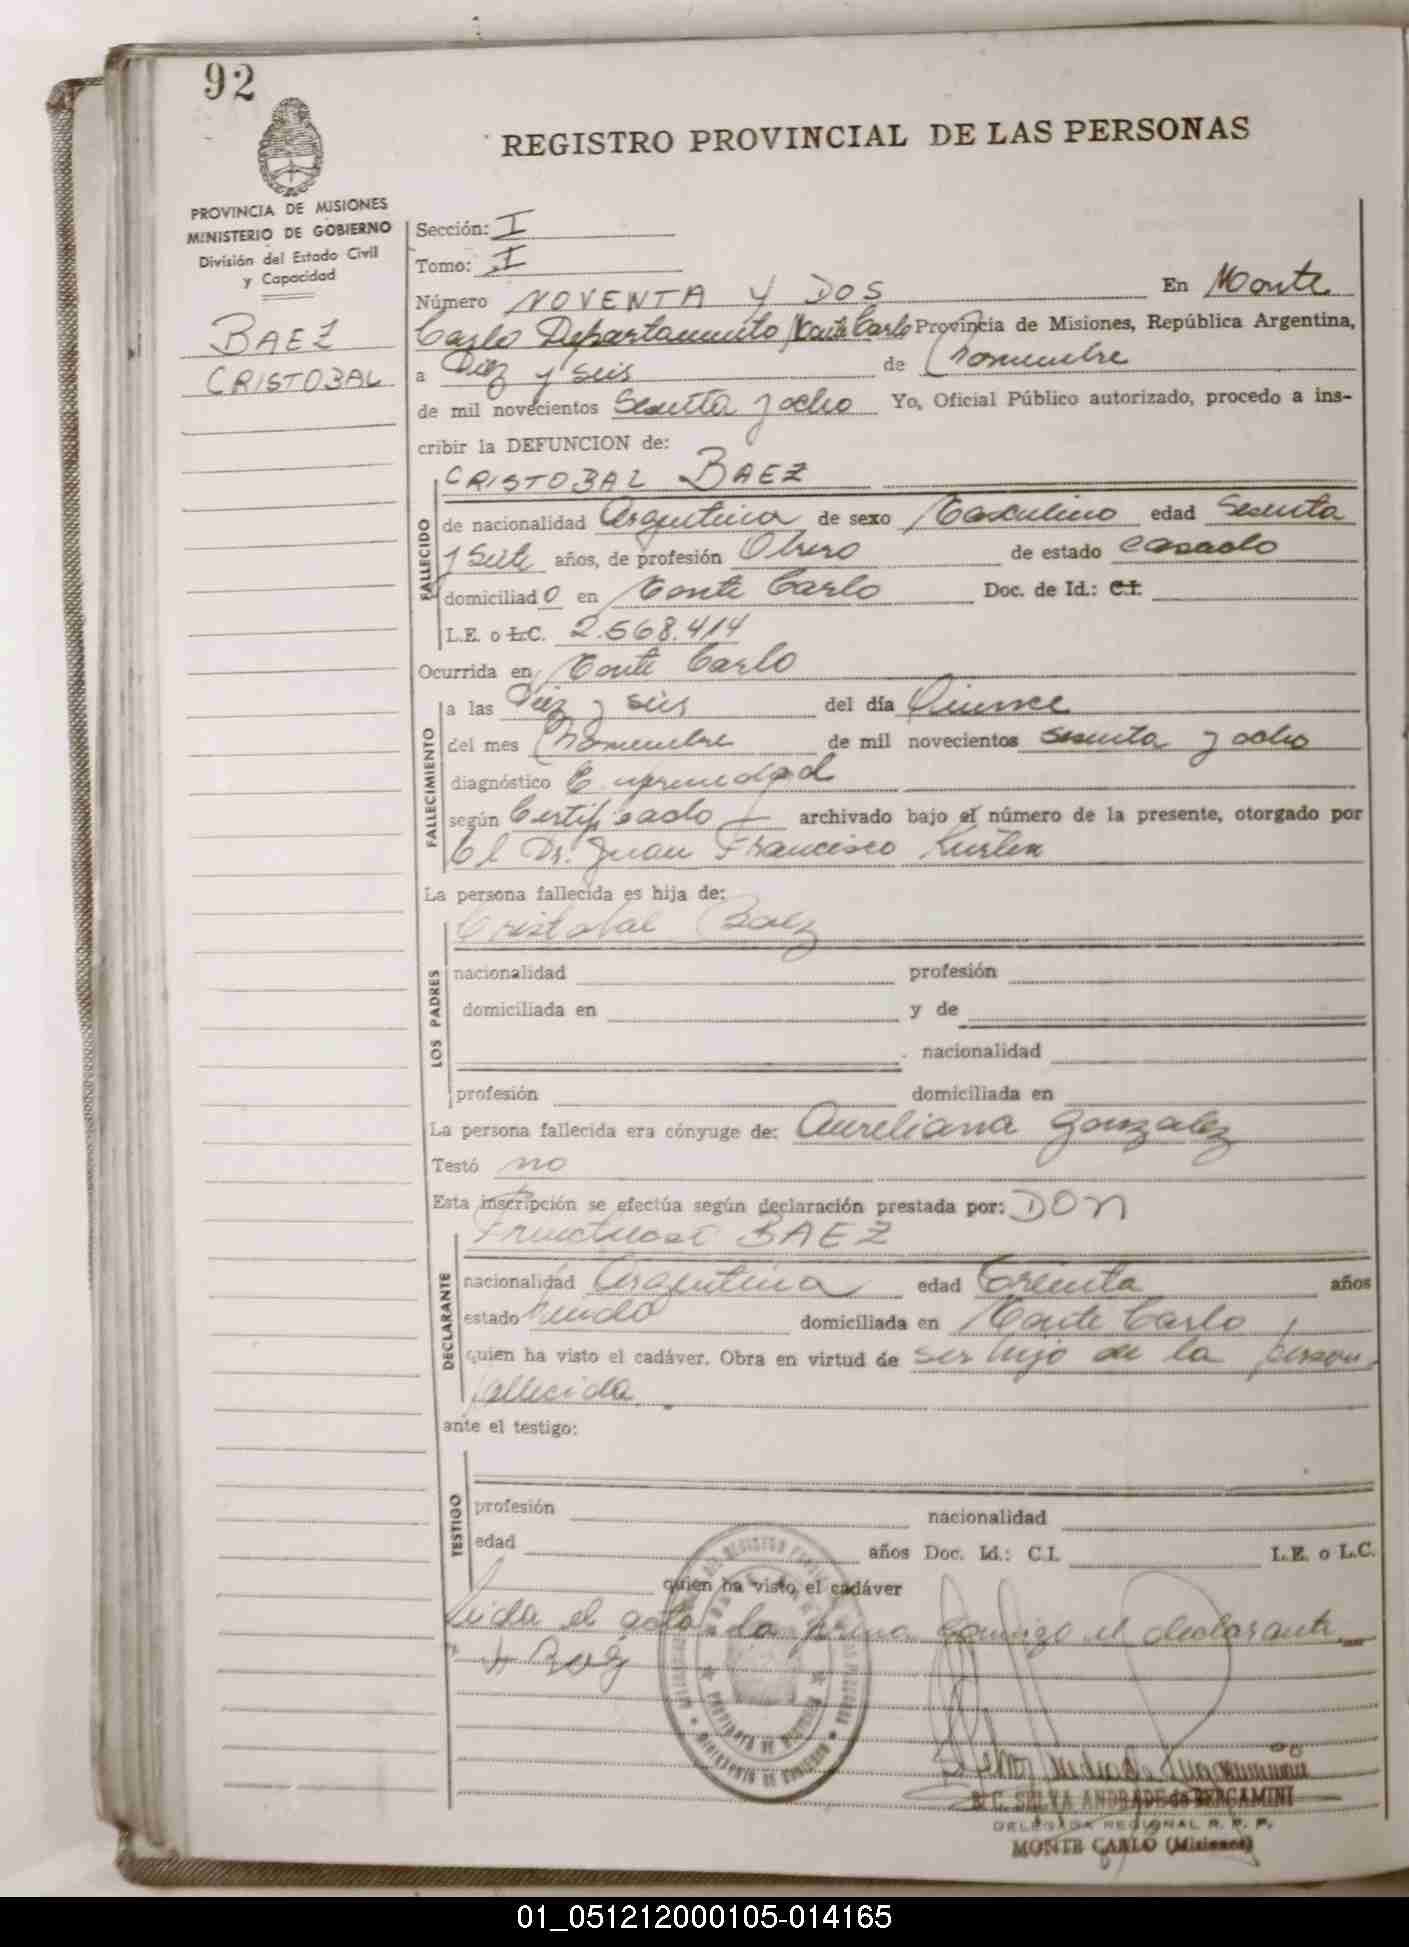 92
REGISTRO PROVINCIAL DE LAS PERSONAS
PROVINCIA DE MISIONES
MINISTERIO DE GOBIERNO
División del Estado Civil
y Capacidad
BAEZ
CRISTOBAL
Sección: I
Tomo: I
Número NOVENTA Y DOS En Monte
Carlo Departamento Monte Carlo Provincia de Misiones, República Argentina,
a Diez y seis de Noviembre
de mil novecientos Sesenta y ocho Yo, Oficial Público autorizado, procedo a ins-
cribir la DEFUNCION de:
CRISTOBAL BAEZ
FALLECIDO
de nacionalidad Argentina de sexo Masculino edad Sesenta
y Siete años, de profesión Obrero de estado casado
domiciliado en Monte Carlo Doc. de Id.: C.I.
L.E. o L.C. 2.568.414
Ocurrida en Monte Carlo
FALLECIMIENTO
a las Diez y seis del día Quince
del mes Noviembre de mil novecientos sesenta y ocho
diagnóstico Enfermedad
según Certificado archivado bajo el número de la presente, otorgado por
El Dr. Juan Francisco
La persona fallecida es hija de:
Cristobal Baez
LOS PADRES
nacionalidad profesión
domiciliada en y de
nacionalidad
profesión domiciliada en
La persona fallecida era cónyuge de: Aureliana Gonzalez
Testó no
Esta inscripción se efectúa según declaración prestada por: DON
Fructuoso BAEZ
DECLARANTE
nacionalidad Argentina edad Treinta años
estado domiciliada en Monte Carlo
quien ha visto el cadáver. Obra en virtud de ser hijo de la persona
fallecida.
ante el testigo:
TESTIGO
profesión nacionalidad
edad años Doc. Id.: C.I. L.E. o L.C.
quien ha visto el cadáver
Leida el acta la firma conmigo el declarante
PROVINCIA DE MISIONES
MINISTERIO DE GOBIERNO
SELVA ANDRADE de BERGAMINI
DELEGADA REGIONAL R. P. P.
MONTE CARLO (Misiones)
01_051212000105-014165